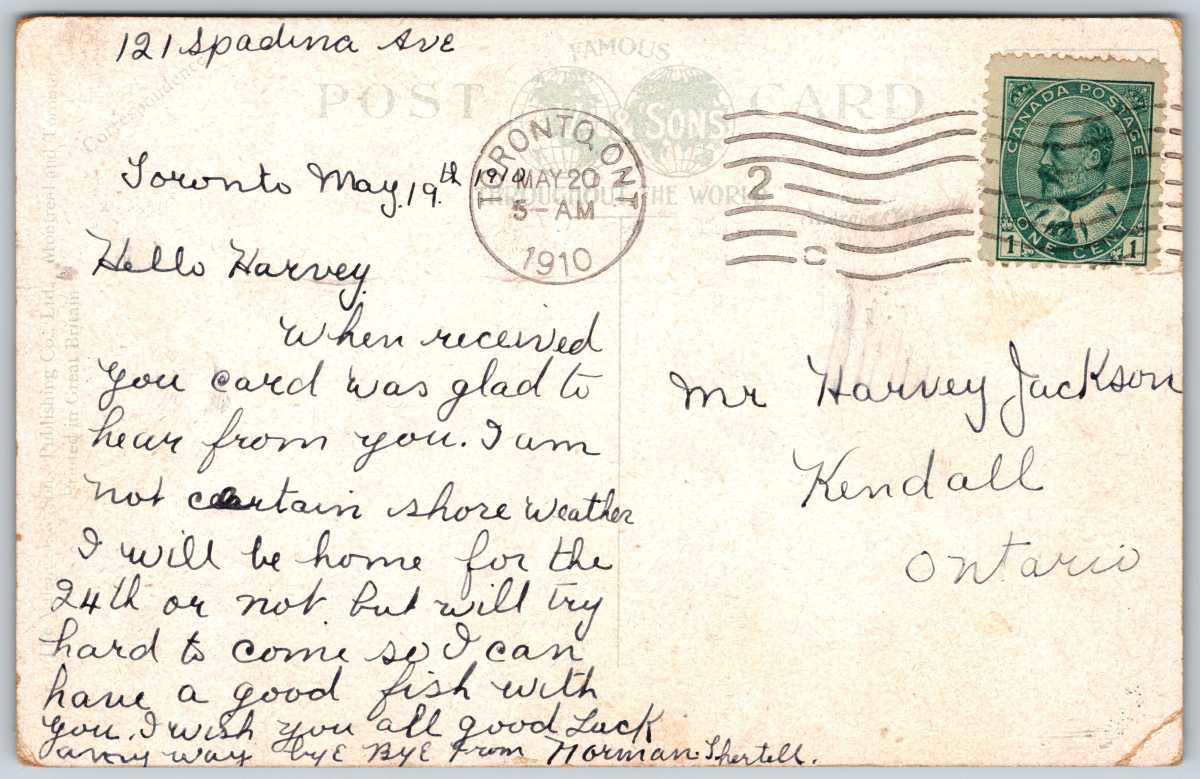 121 Spadina Ave
Correspondence
FAMOUS
POST CARD
& SONS
THROUGHOUT THE WORLD
TORONTO, ONT
MAY 20
5-AM
1910
2
C
CANADA POSTAGE
ONE CENT
1 1
Toronto May. 19th 1910
Hello Harvey
When received
you card was glad to
hear from you. I am
not certain shore weather
I will be home for the
24th or not but will try
hard to come so I can
have a good fish with
you. I wish you all good Luck
anny way byE ByE From Norman
Mr Harvey Jackson
Kendall
Ontario
Publishing Co., Ltd., Montreal and
Printed in Great Britain